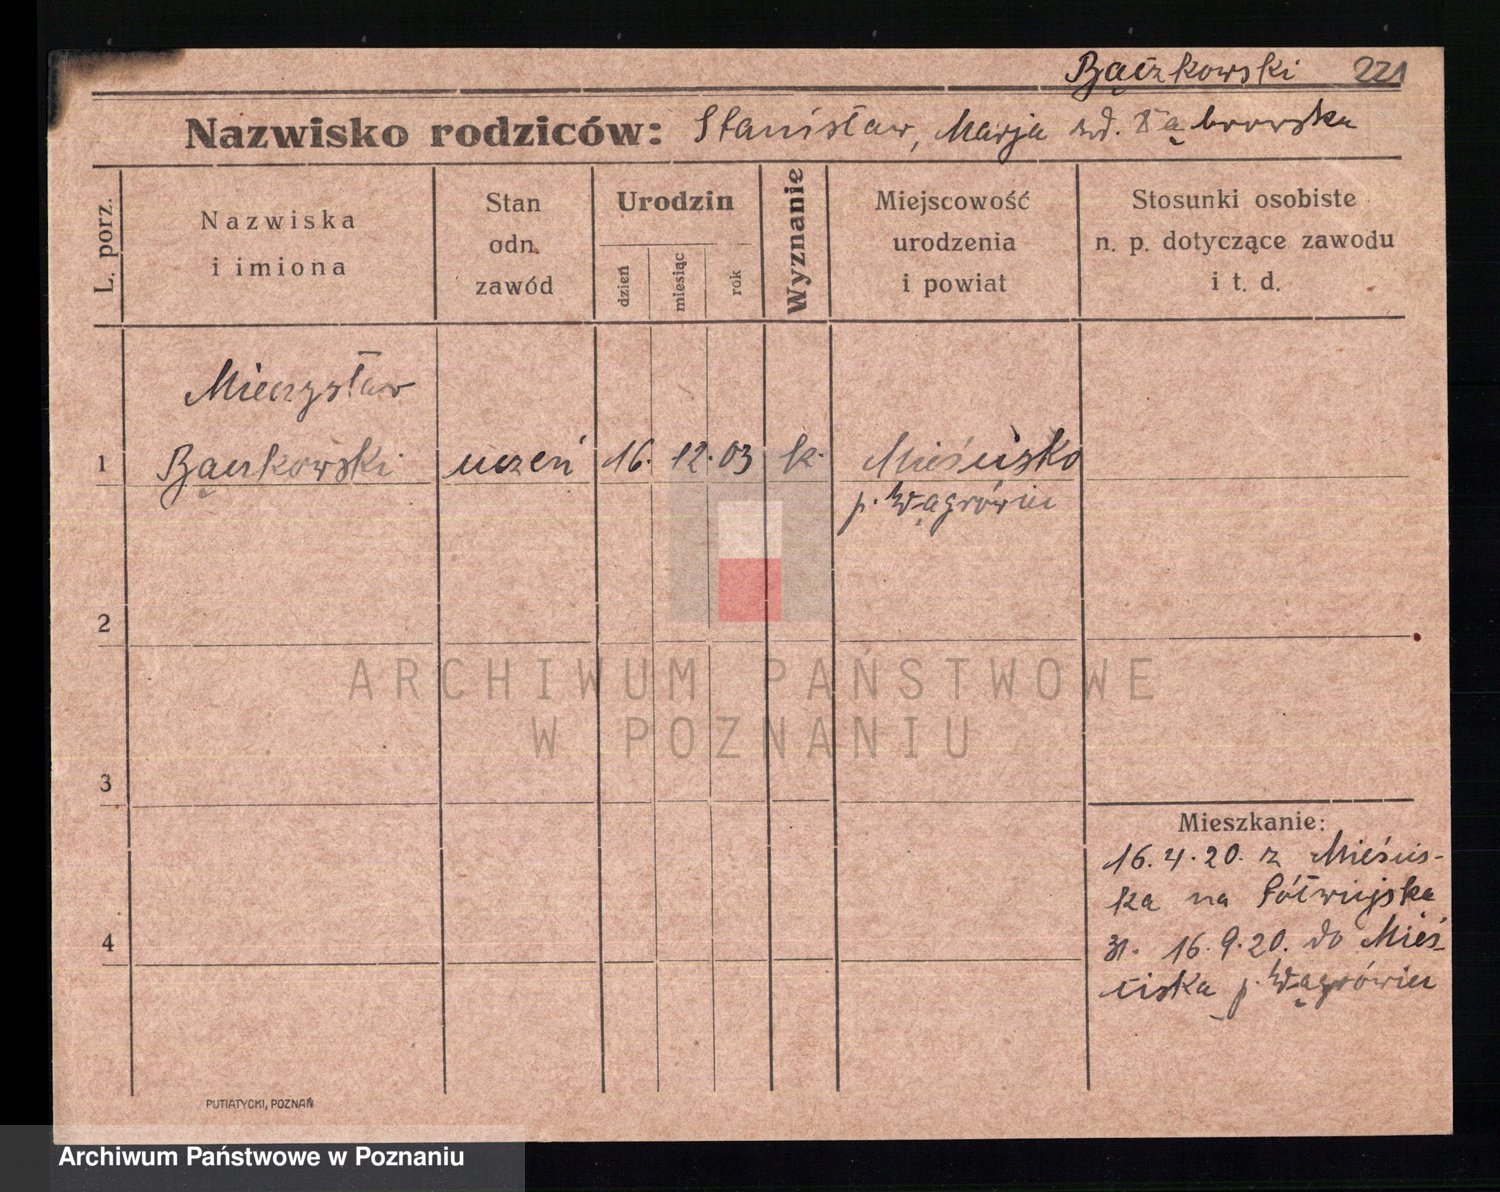 Bączkowski 221
Nazwisko rodziców: Stanisław, Marja
L. porz.
Nazwiska
i imiona
Stan
odn.
zawód
Urodzin
dzień
miesiąc
rok
Wyznanie
Miejscowość
urodzenia
i powiat
Stosunki osobiste
n. p. dotyczące zawodu
i t. d.
Mieczysław
1 Bączkowski uczeń 16. 12. 03 k. Mieścisko
p. Wągrówiec
2
ARCHIWUM PAŃSTWOWE
W POZNANIU
3
Mieszkanie:
16.4.20. z Mieścis-
ka na Półwiejska
4
31. 16.9.20. do Mieś-
ciska p. Wągrówiec
PUTIATYCKI, POZNAŃ
Archiwum Państwowe w Poznaniu